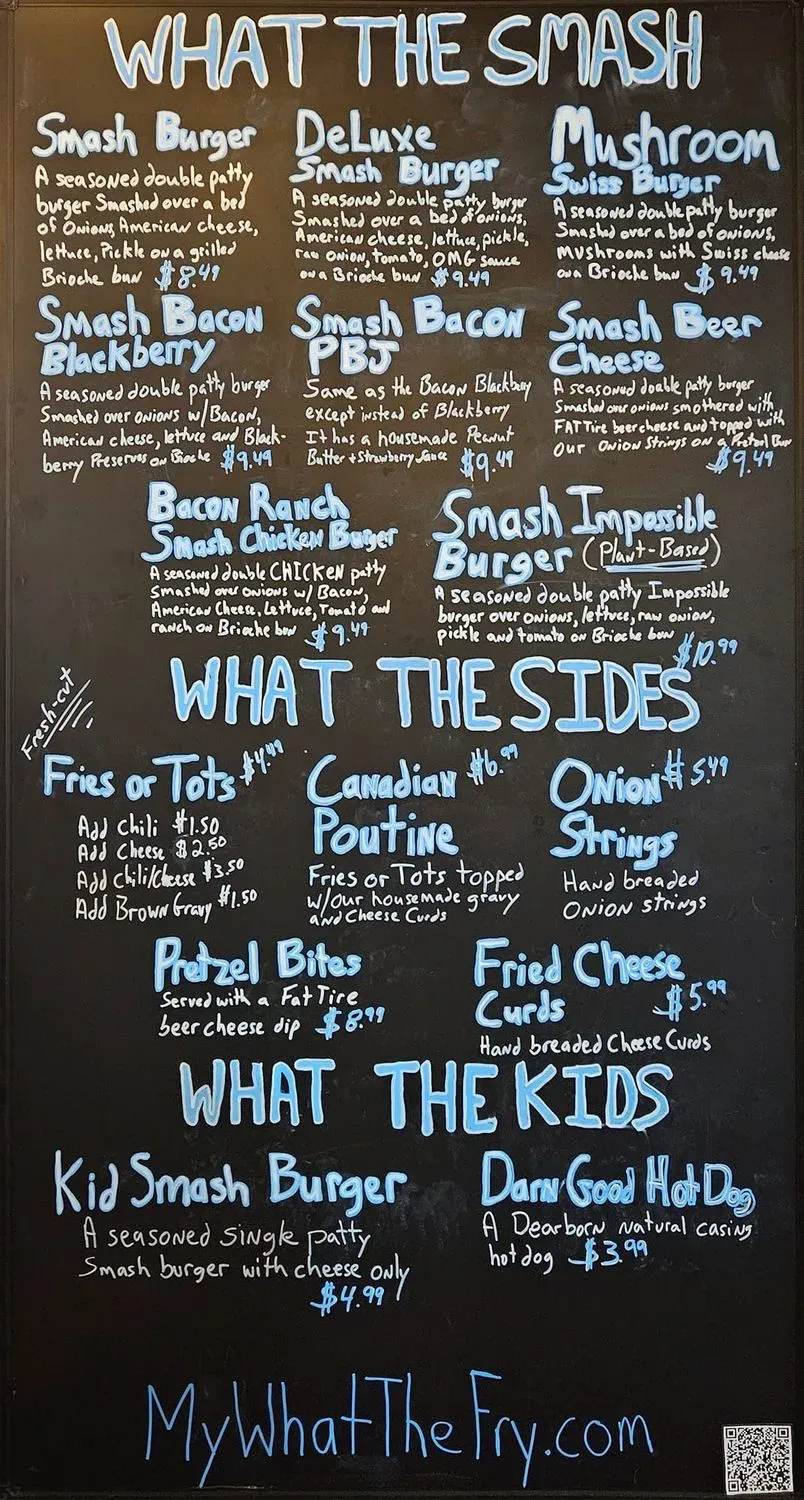 WHAT THE SMASH
Smash Burger
A seasoned double patty
burger Smashed over a bed
of Onions, American cheese,
lettuce, Pickle on a grilled
Brioche bun $8.49
DeLuxe
Smash Burger
A seasoned double patty burger
Smashed over a bed of onions,
American cheese, lettuce, pickle,
raw onion, tomato, OMG sauce
on a Brioche bun $9.49
Mushroom
Swiss Burger
A seasoned double patty burger
Smashed over a bed of onions,
mushrooms with Swiss cheese
on a Brioche bun $9.49
Smash Bacon
Blackberry
A seasoned double patty burger
Smashed over onions w/Bacon,
American cheese, lettuce and Black-
berry Preserves on Brioche $9.49
Smash Bacon
PBJ
Same as the Bacon Blackberry
except instead of Blackberry
It has a housemade Peanut
Butter + Strawberry Sauce $9.49
Smash Beer
Cheese
A seasoned double patty burger
Smashed over onions smothered with
FAT Tire beer cheese and topped with
our Onion Strings on a Pretzel Bun
$9.49
Bacon Ranch
Smash Chicken Burger
A seasoned double CHICKEN patty
Smashed over onions w/ Bacon,
American Cheese, Lettuce, Tomato and
ranch on Brioche bun $9.49
Smash Impossible
Burger (Plant-Based)
A seasoned double patty Impossible
burger over onions, lettuce, raw onion,
pickle and tomato on Brioche bun
$10.99
WHAT THE SIDES
Fresh-cut
Fries or Tots $4.49
Add Chili $1.50
Add Cheese $2.50
Add Chili/Cheese $3.50
Add Brown Gravy $1.50
Canadian $6.99
Poutine
Fries or Tots topped
w/our housemade gravy
and Cheese Curds
Onion $5.49
Strings
Hand breaded
Onion strings
Pretzel Bites
Served with a Fat Tire
beer cheese dip $8.99
Fried Cheese
Curds $5.99
Hand breaded Cheese Curds
WHAT THE KIDS
Kid Smash Burger
A seasoned single patty
Smash burger with cheese only
$4.99
Darn Good Hot Dog
A Dearborn natural casing
hot dog $3.99
MyWhatTheFry.com